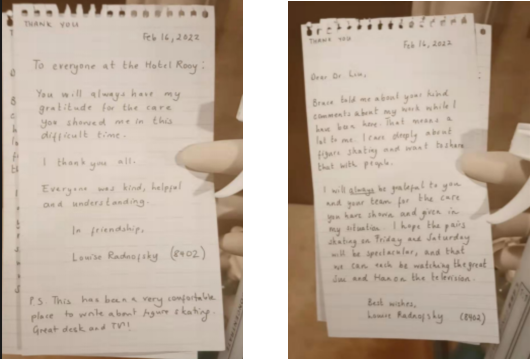 THANK YOU
Feb 16, 2022
To everyone at the Hotel Rooy:
You will always have my
gratitude for the care
you showed me in this
difficult time.
I thank you all.
Everyone was kind, helpful
and understanding.
In friendship,
Louise Radnofsky (8402)
P.S. This has been a very comfortable
place to write about figure skating.
Great desk and TV!!
THANK YOU
Feb 16, 2022
Dear Dr. Liu,
told me about your kind
comments about my work while I
have been here. That means a
lot to me. I care deeply about
figure skating and want to share
that with people.
I will always be grateful to you
and your team for the care
you have shown and given in
my situation. I hope the pairs
skating on Friday and Saturday
will be spectacular, and that
we can each be watching the great
Sui and Han on the television.
Best wishes,
Louise Radnofsky (8402)